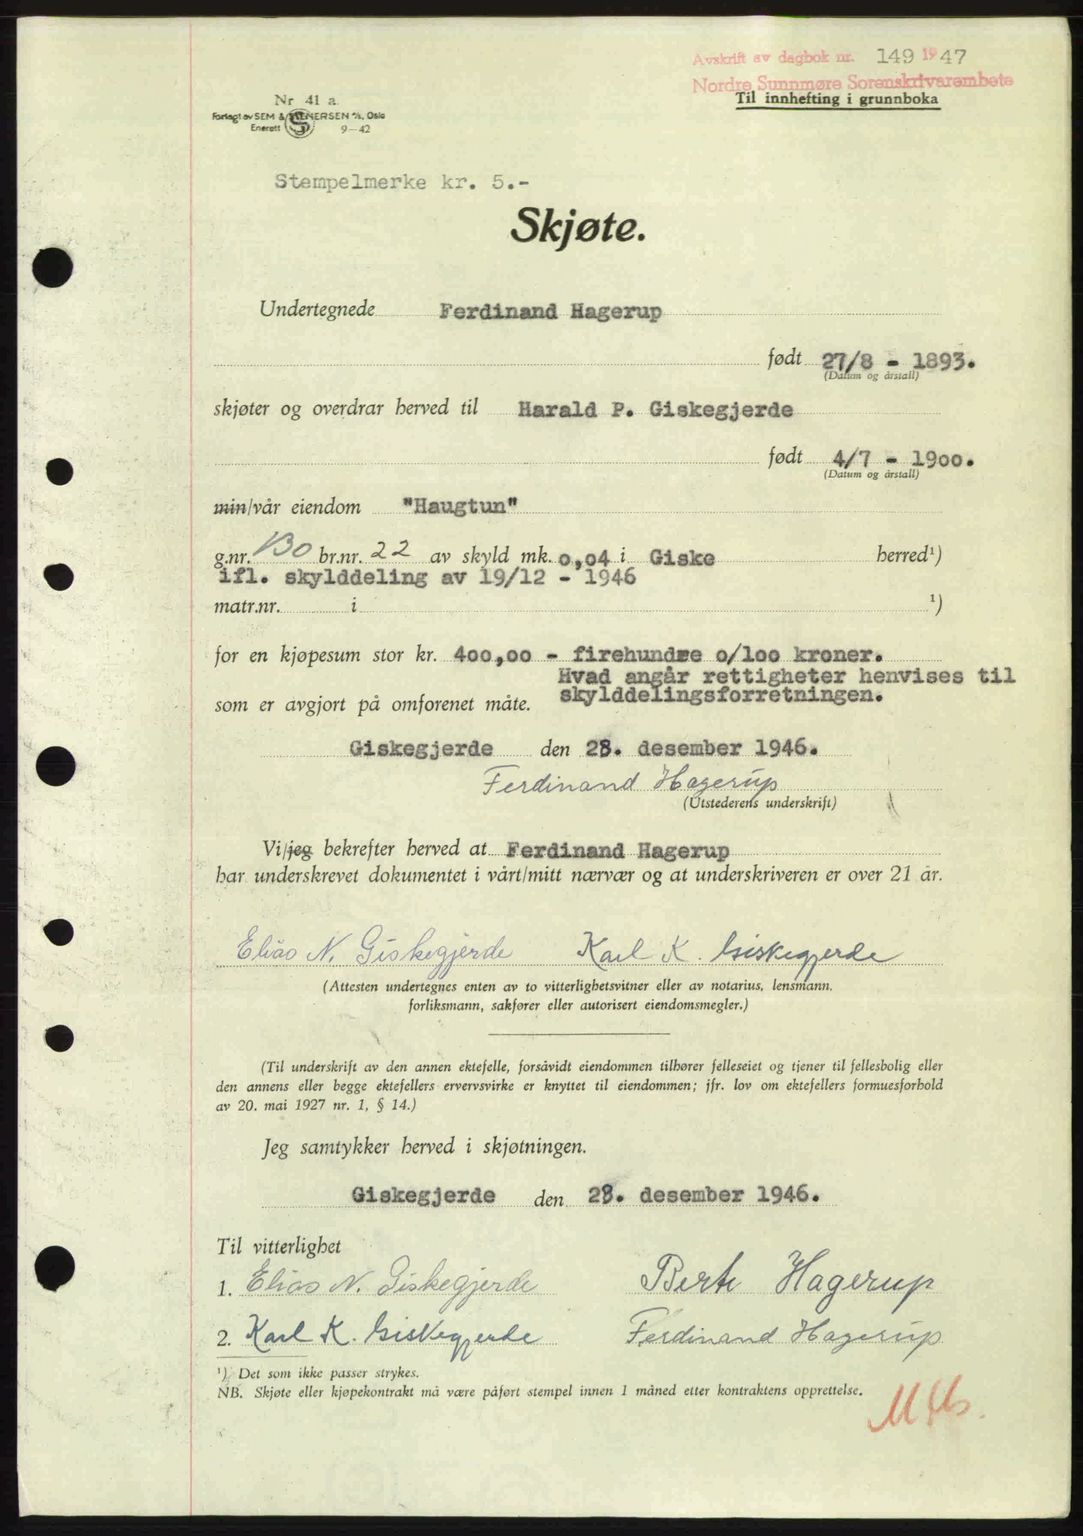 Avskrift av dagbok nr. 149 1947
Nordre Sunnmøre Sorenskrivarembete
Til innhefting i grunnboka
Nr 41 a.
Forlagt av SEM & STENERSEN A/S, Oslo
Enerett 9-42
Stempelmerke kr. 5.-
Skjøte.
Undertegnede Ferdinand Hagerup
født 27/8 - 1893.
(Datum og årstall)
skjøter og overdrar herved til Harald P. Giskegjerde
født 4/7 - 19oo.
(Datum og årstall)
min/vår eiendom "Haugtun"
g.nr. 130 br.nr. 22 av skyld mk. o,o4 i Giske herred¹)
ifl. skylddeling av 19/12 - 1946
matr.nr. i ¹)
for en kjøpesum stor kr. 4oo,oo - firehundre o/loo kroner.
Hvad angår rettigheter henvises til
som er avgjort på omforenet måte. skylddelingsforretningen.
Giskegjerde den 28. desember 1946.
Ferdinand Hagerup
(Utstederens underskrift)
Vi/jeg bekrefter herved at Ferdinand Hagerup
har underskrevet dokumentet i vårt/mitt nærvær og at underskriveren er over 21 år.
Elias N. Giskegjerde Karl K. Giskegjerde
(Attesten undertegnes enten av to vitterlighetsvitner eller av notarius, lensmann,
forliksmann, sakfører eller autorisert eiendomsmegler.)
(Til underskrift av den annen ektefelle, forsåvidt eiendommen tilhører felleseiet og tjener til fellesbolig eller
den annens eller begge ektefellers ervervsvirke er knyttet til eiendommen; jfr. lov om ektefellers formuesforhold
av 20. mai 1927 nr. 1, § 14.)
Jeg samtykker herved i skjøtningen.
Giskegjerde den 28. desember 1946.
Til vitterlighet
1. Elias N. Giskegjerde Berte Hagerup
2. Karl K. Giskegjerde Ferdinand Hagerup
¹) Det som ikke passer strykes.
NB. Skjøte eller kjøpekontrakt må være påført stempel innen 1 måned etter kontraktens opprettelse.